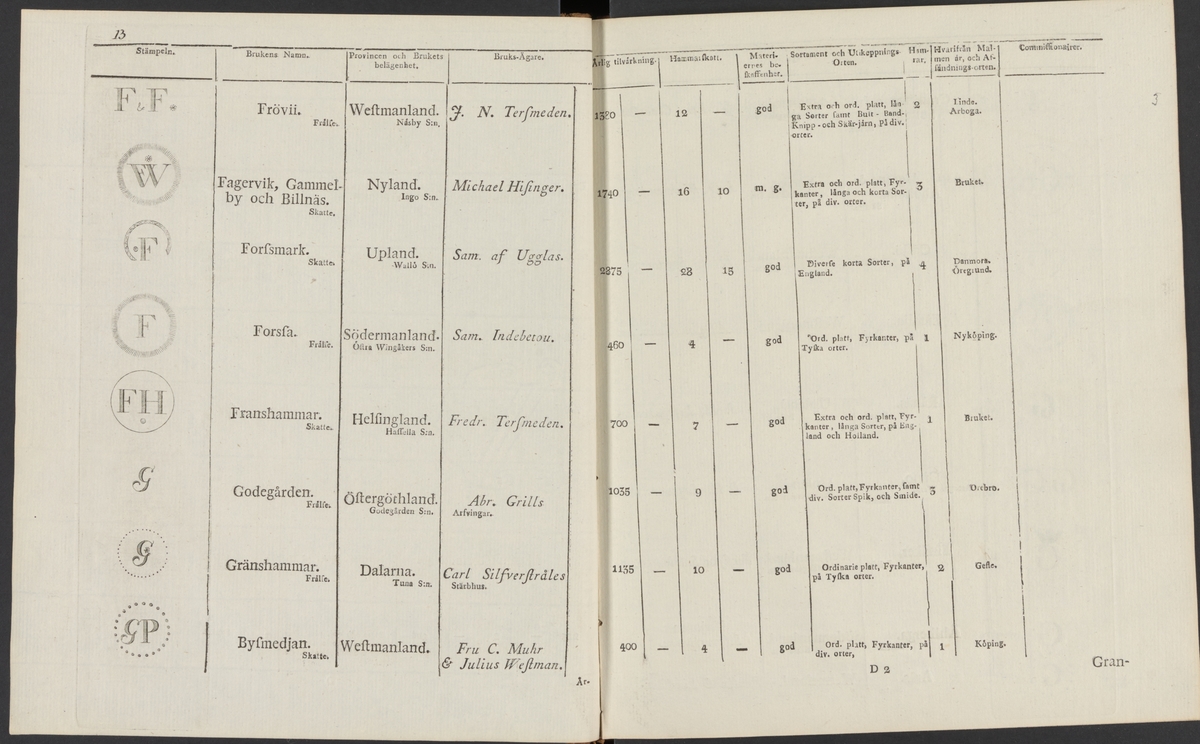 13
Stämpeln.
Brukens Namn.
Provincen och Brukets
belägenhet.
Bruks-Ägare.
F. F.
Frövii.
Frälſe.
Weſtmanland.
Näsby S:n.
J. N. Terſmeden.
W
Fagervik, Gammel-
by och Billnäs.
Skatte.
Nyland.
Ingo S:n.
Michael Hiſinger.
F
Forſsmark.
Skatte.
Upland.
Wallö S:n.
Sam. af Ugglas.
F
Forsſa.
Frälſe.
Södermanland.
Öſtra Wingåkers S:n.
Sam. Indebetou.
FH
Franshammar.
Skatte.
Helſingland.
Haſſella S:n.
Fredr. Terſmeden.
G
Godegården.
Frälſe.
Öſtergöthland.
Godegården S:n.
Abr. Grills
Arfvingar.
G
Gränshammar.
Frälſe.
Dalarna.
Tuna S:n.
Carl Silfverſtråles
Stärbhus.
GP
Byſmedjan.
Skatte.
Weſtmanland.
Fru C. Muhr
& Julius Weſtman.
Är-
Årlig tilvärkning.
Hammarſkatt.
Materi-
ernes be-
ſkaffenhet.
Sortament och Utſkeppnings-
Orten.
Ham-
rar.
Hvarifrån Mal-
men är, och Af-
ſändnings-orten.
Commiſſionairer.
3
1380 — 12 — god
Extra och ord. platt, lån-
ga Sorter ſamt Bult - Band-
Knipp - och Skär-järn, på div.
orter.
2
Linde.
Arboga.
1740 — 16 10 m. g.
Extra och ord. platt, Fyr-
kanter, långa och korta Sor-
ter, på div. orter.
3
Bruket.
2875 — 28 15 god
Diverſe korta Sorter, på
England.
4
Danmora.
Öregrund.
460 — 4 — god
Ord. platt, Fyrkanter, på
Tyſka orter.
1
Nyköping.
700 — 7 — god
Extra och ord. platt, Fyr-
kanter, långa Sorter, på Eng-
land och Holland.
1
Bruket.
1035 — 9 — god
Ord. platt, Fyrkanter, ſamt
div. Sorter Spik, och Smide.
3
Örebro.
1135 — 10 — god
Ordinarie platt, Fyrkanter,
på Tyſka orter.
2
Gefle.
400 — 4 — god
Ord. platt, Fyrkanter, på
div. orter,
1
Köping.
D 2
Gran-